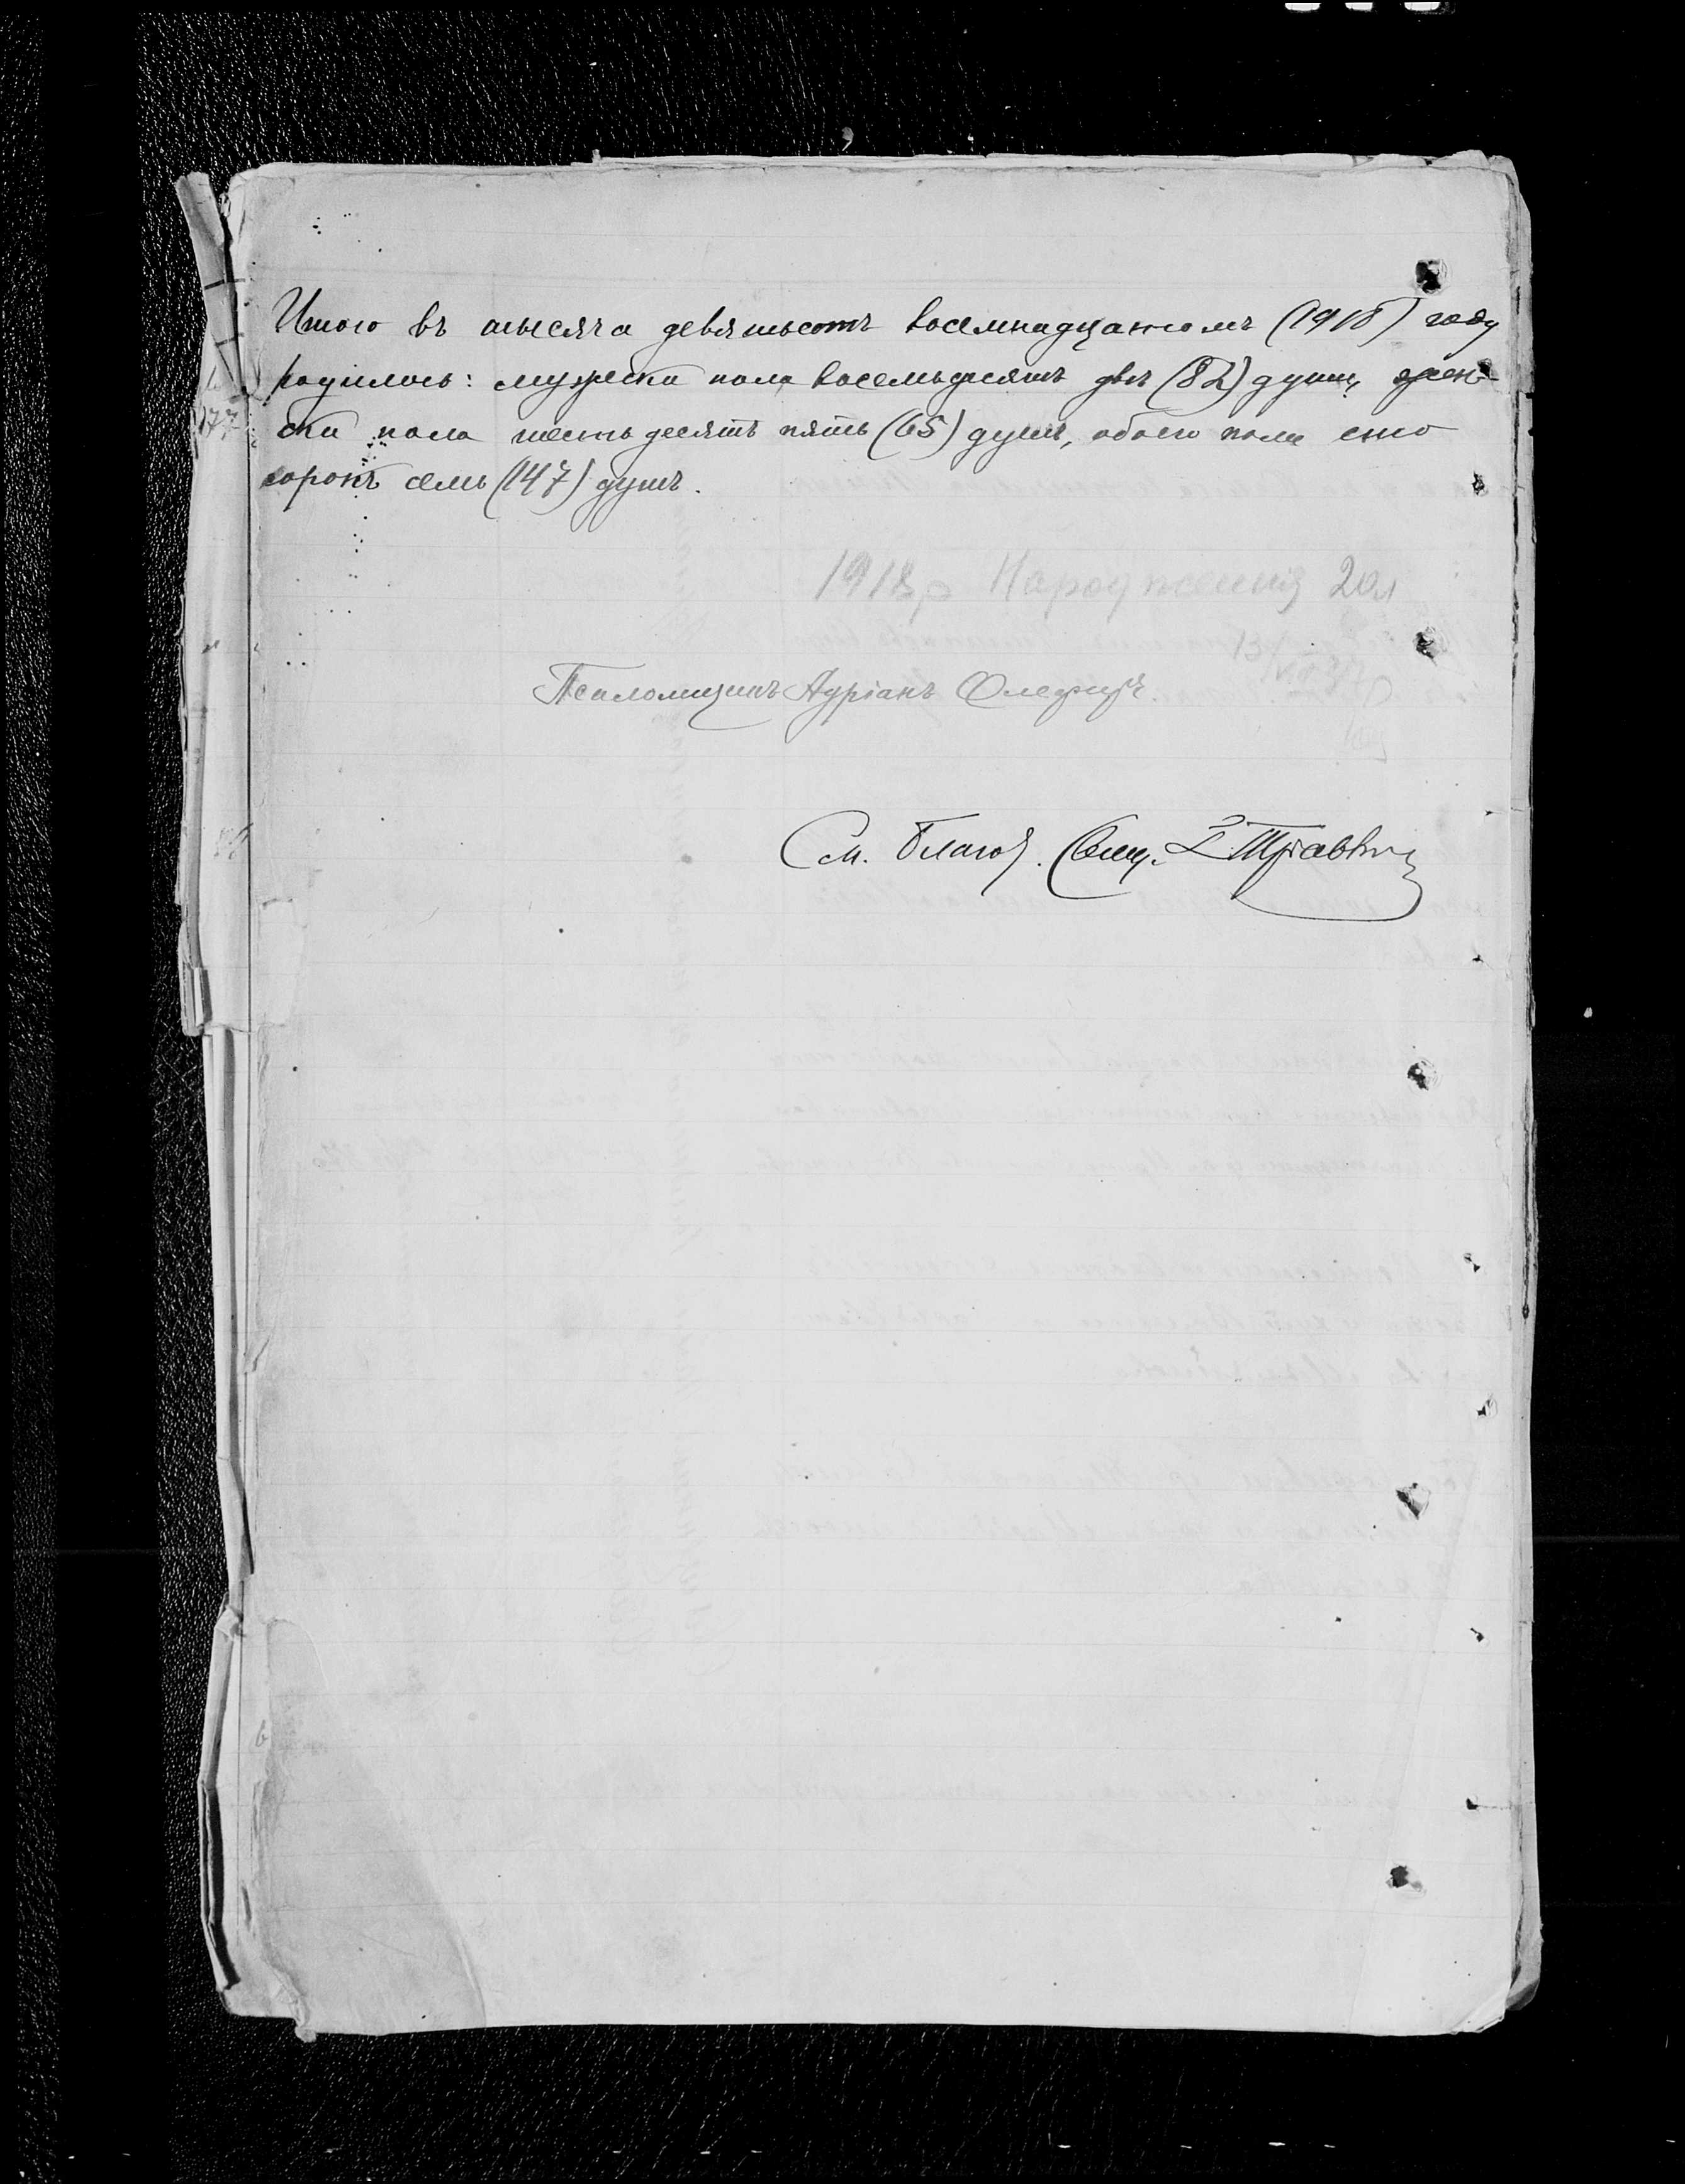 Итого въ тысяча девятьсотъ восемнадцатомъ (1918) году
родилось: мужески пола восемьдесятъ двѣ (82) души, жен-
ски пола шестьдесятъ пять (65) душъ, обоего пола сто
сорокъ семь (147) душъ.
1918р Народження 20л
13/VII 37р
Псаломщикъ Адріанъ
См. Благоч. Свящ.